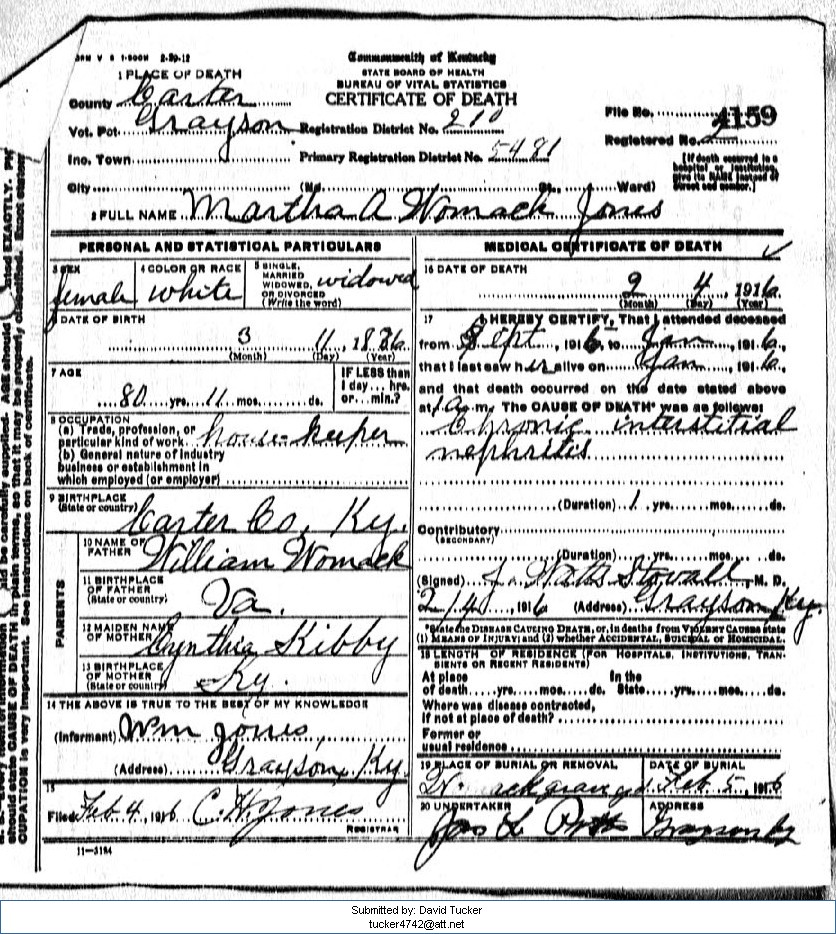 FORM V S 1-500M 2-20-12
Commonwealth of Kentucky
STATE BOARD OF HEALTH
BUREAU OF VITAL STATISTICS
CERTIFICATE OF DEATH
1 PLACE OF DEATH
County Carter
Vot. Pct. Grayson Registration District No. 210
File No. 4159
Registered No. 2
Inc. Town Primary Registration District No. 5481
City (No. St. Ward)
[If death occurred in a
hospital or institution,
give its NAME instead of
street and number.]
2 FULL NAME Martha A Womack Jones
PERSONAL AND STATISTICAL PARTICULARS
3 SEX
female
4 COLOR OR RACE
white
5 SINGLE,
MARRIED
WIDOWED,
OR DIVORCED
(Write the word)
widowed
6 DATE OF BIRTH
3 11, 1836
(Month) (Day) (Year)
7 AGE
80 yrs. 11 mos. ds.
IF LESS than
1 day... hrs.
or... min.?
8 OCCUPATION
(a) Trade, profession, or
particular kind of work house-keeper
(b) General nature of industry
business or establishment in
which employed (or employer)
9 BIRTHPLACE
(State or country)
Carter Co, Ky.
PARENTS
10 NAME OF
FATHER William Womack
11 BIRTHPLACE
OF FATHER
(State or country) Va.
12 MAIDEN NAME
OF MOTHER Cynthia Kibby
13 BIRTHPLACE
OF MOTHER
(State or country) Ky.
14 THE ABOVE IS TRUE TO THE BEST OF MY KNOWLEDGE
(Informant) Wm Jones,
(Address) Grayson, Ky.
15
Filed Feb 4, 1916 C. H. Jones
REGISTRAR
11-3184
MEDICAL CERTIFICATE OF DEATH
16 DATE OF DEATH
2 4, 1916
(Month) (Day) (Year)
17 I HEREBY CERTIFY, That I attended deceased
from Sept, 1916, to Jan, 1916,
that I last saw her alive on Jan, 1916,
and that death occurred on the date stated above
at 1 a.m. The CAUSE OF DEATH* was as follows:
Chronic interstitial
nephritis
(Duration) 1 yrs. mos. ds.
Contributory
(SECONDARY)
(Duration) yrs. mos. ds.
(Signed) J. Watts Stovall M. D.
2/4, 1916 (Address) Grayson Ky.
*State the DISEASE CAUSING DEATH, or, in deaths from VIOLENT CAUSES state
(1) MEANS OF INJURY; and (2) whether ACCIDENTAL, SUICIDAL or HOMICIDAL.
18 LENGTH OF RESIDENCE (FOR HOSPITALS, INSTITUTIONS, TRAN-
SIENTS OR RECENT RESIDENTS)
At place In the
of death yrs. mos. ds. State yrs. mos. ds.
Where was disease contracted,
if not at place of death?
Former or
usual residence
19 PLACE OF BURIAL OR REMOVAL
DATE OF BURIAL
Feb. 5, 1916
20 UNDERTAKER
ADDRESS
Grayson Ky
Submitted by: David Tucker
tucker4742@att.net